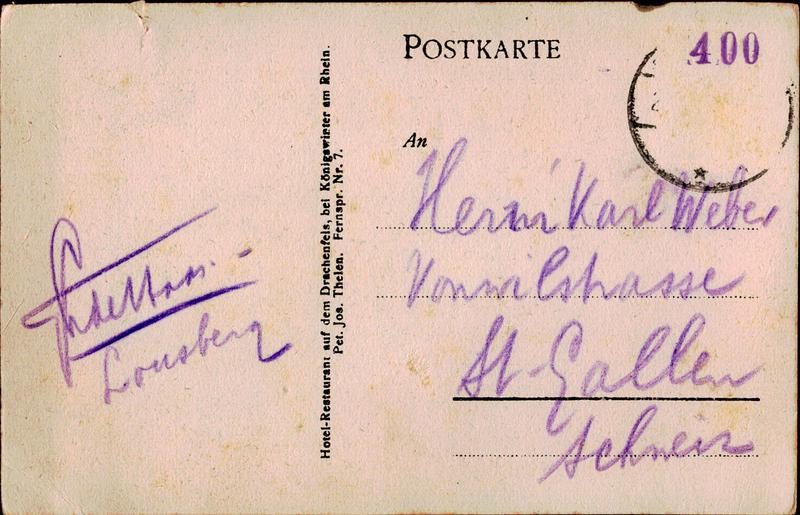 POSTKARTE
400
An
Herrn Karl Weber
Vonwilstrasse
St-Gallen
Schweiz
Hotel-Restaurant auf dem Drachenfels, bei Königswinter am Rhein.
Pet. Jos. Thelen. Fernspr. Nr. 7.
Lousberg